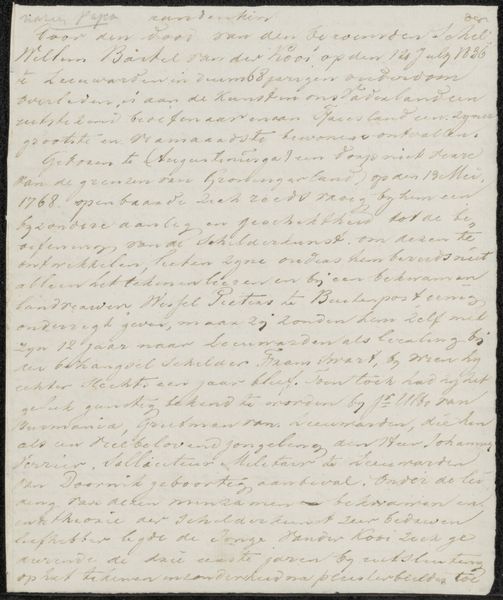 aandenken
Door den dood van den beroemden Schil
Willem Bartel van der Kooi op den 14 July 1836
te Leeuwarden in den 68 jarigen ouderdom
overleden, is aan de Kunsten ons Vaderland een
uitstekend beoefenaar en aan Friesland een zyner
grootste en vermaardste bewoners ontvallen.
Geboren te (Augustinusga) een dorp niet verre
van de grenzen van Groningerland) op den 13 Mei
1768 openbaarde zich reeds vroeg by hem een
byzondere aanleg en geschiktheid tot de be
oefening van de Schilderkunst, om dezen te
ontwikkelen, lieten zyne ouders hem bereids niet
alleen het tekenen leeren en bij een bekwamen
landmeter Wessel Pieters te Buitenpost eenig
onderregt geven, maar zij zonden hem zelf met
zyn 12e jaar naar Leeuwarden als leerling bij
den behangsel schilder Frans Swart, by wien hij
echter slechts een jaar bleef. Toen toch had hij het
geluk gunstig bekend te worden by van
Burmania, Grietman van Leeuwarden, die hem
als een veelbelovend jongeling den Heer Johannes
Verrier, Solliciteur Militair te Leeuwarden
van Doornik geboortig, aanbeval. Onder de lei
ding van dezen minzamen bekwamen en
in de theorie der Schilderkunst zeer bedreven
liefhebber legde de jonge van der Kooi zich ge
durende de drie eerste jaren by uitsluiting
op het tekenen inzonderheid na pleisterbeelden toe